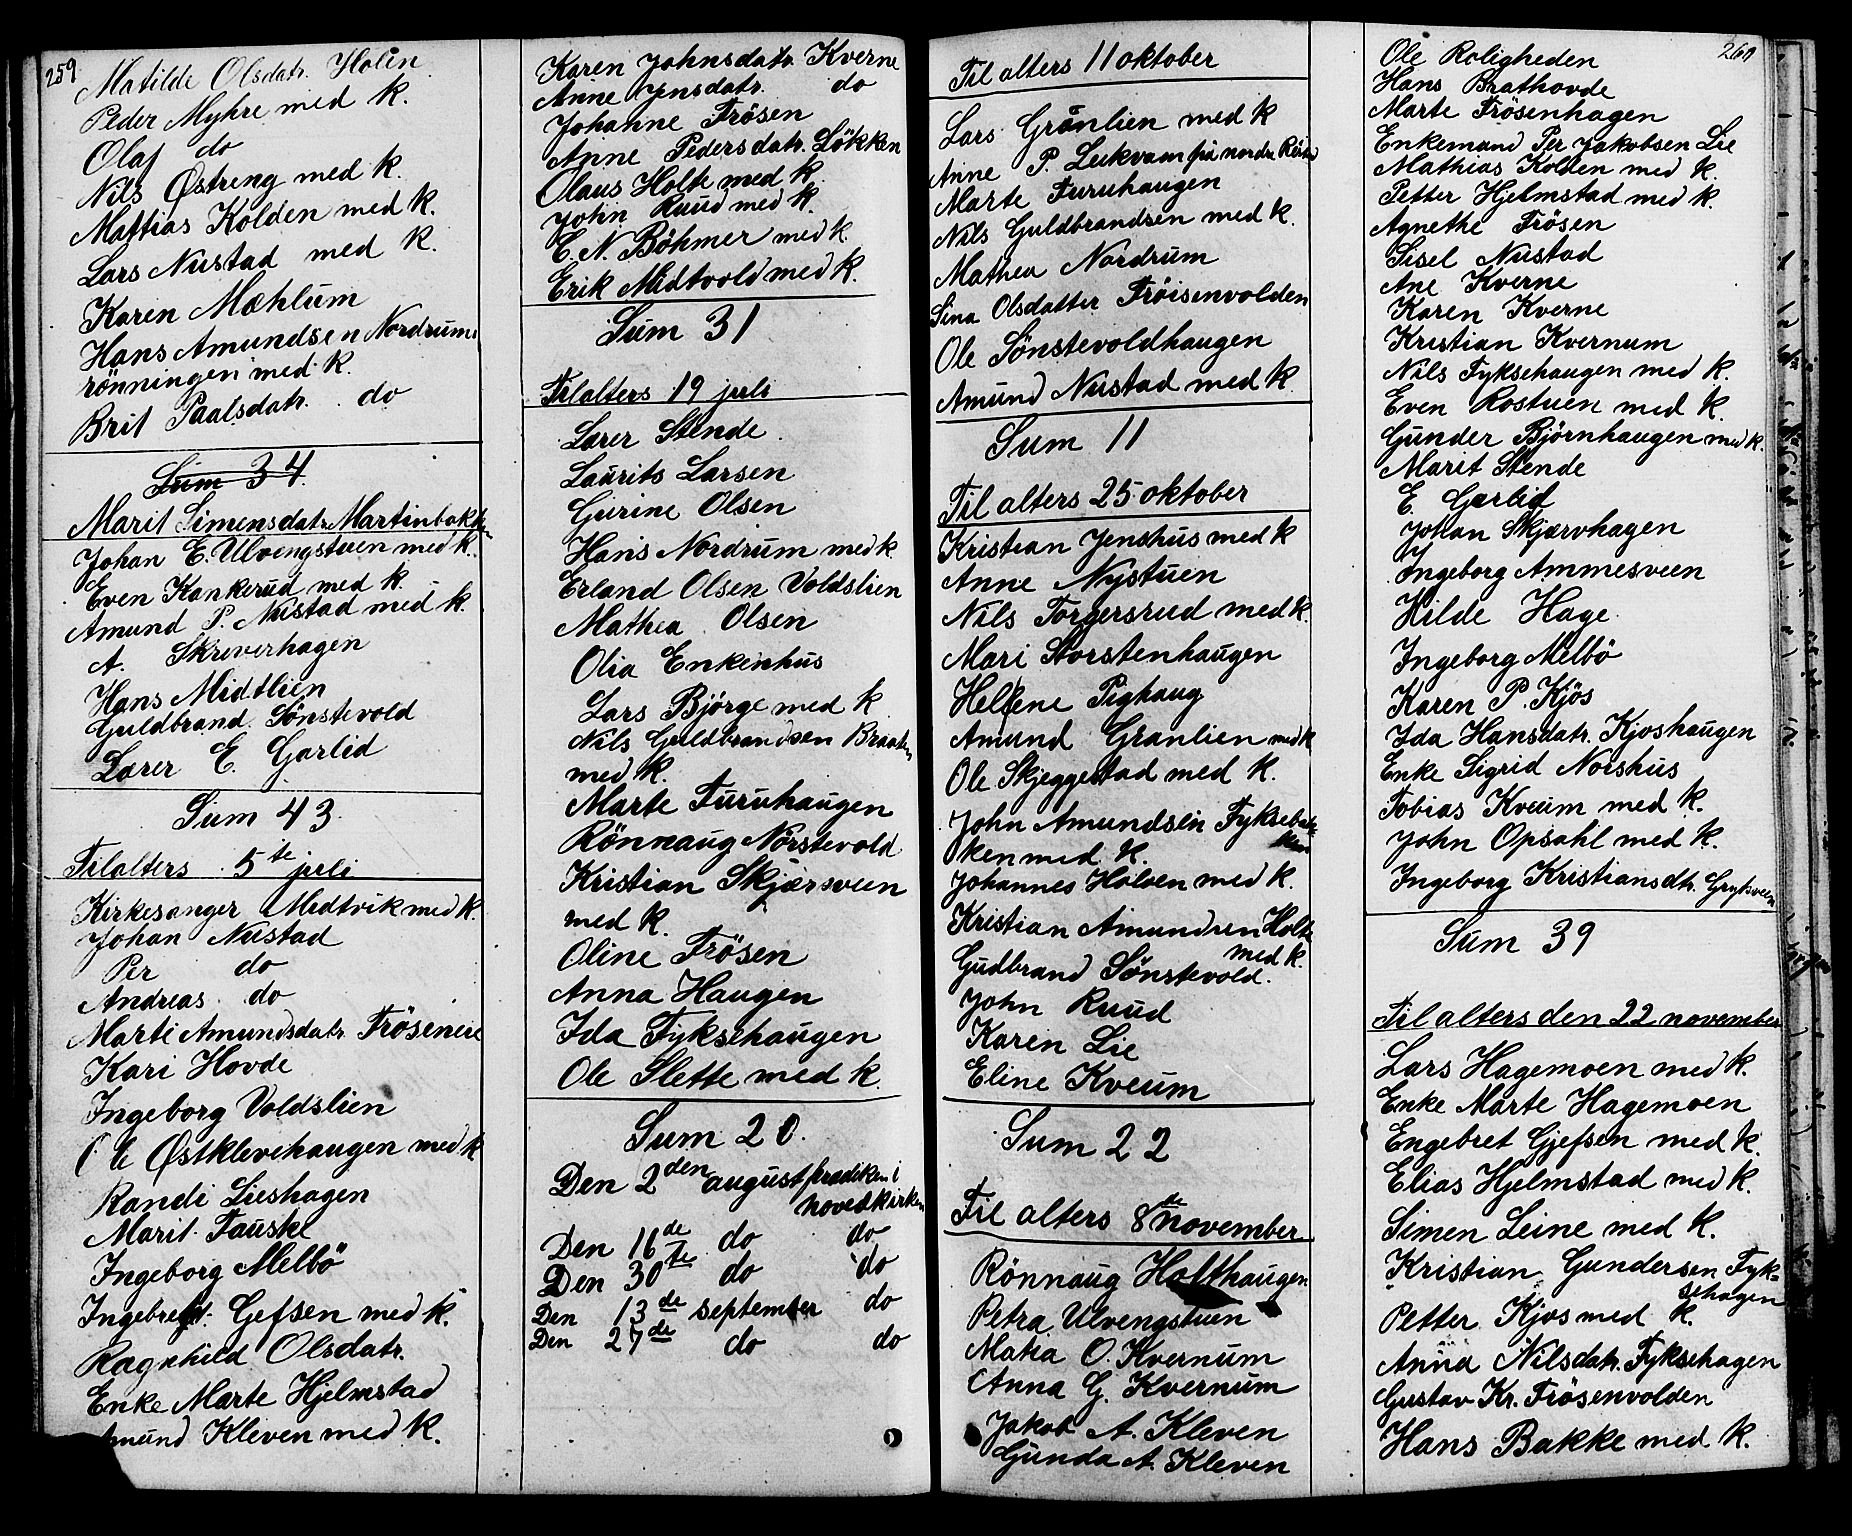 259
Matilde Olsdatr. Holen
Peder Myhre med k.
Olaf do
Nils Østreng med k.
Mattias Kolden med k.
Lars Nustad med k.
Karen Mæhlum
Hans Amundsen Nordrums
rönningen med k.
Brit Paalsdatr. do
Sum 34
Marit Simensdatr. Martinbakken
Johan E. Ulvengstuen med k.
Even Kankerud med k.
Amund P. Nustad med k.
A. Skriverhagen
Hans Midtlien
Guldbrand Sönstevold
Lærer E. Garlid
Sum 43.
Til alters 5te juli
Kirkesanger Midtvik med k.
Johan Nustad
Per do
Andreas do
Marte Amundsdatr. Fröseneie
Kari Hovde
Ingeborg Voldslien
Ole Østklevehaugen med k
Randi Lieshagen
Marit Fauske
Ingeborg Melbö
Ingebregt Gefsen med k.
Ragnhild Olsdatr.
Enke Marte Hjelmstad
Amund Kleven med k.
Karen Johnsdatr. Kverne
Anne Jensdatr. do
Johanne Frösen
Anne Pedersdatr. Lökken
Olaus Holte med k
John Ruud med k.
E. N. Böhmer med k.
Erik Midtvold med k.
Sum 31
Til alters 19 juli
Lærer Stende
Laurits Larsen
Gurine Olsen
Hans Nordrum med k
Erland Olsen Voldslien
Mathea Olsen
Olia Enkenhus
Lars Björge med k
Nils Guldbrandsen Braaten
med k.
Marte Furuhaugen
Rönnaug Nörstevold
Kristian Skjærsveen
med k.
Oline Frösen
Anna Haugen
Ida Fyksehaugen
Ole Slette med k.
Sum 20.
Den 2den august prædiken i
hovedkirken
Den 16de do do
Den 30te do do
Den 13de september do
Den 27de do do
Til alters 11 oktober
Lars Grönlien med k
Anne P. Leekvam på nordre
Marte Furuhaugen
Nils Guldbrandsen med k.
Mathea Nordrum
Sina Olsdatter Fröisenvolden
Ole Sönstevoldhaugen
Amund Nustad med k.
Sum 11
Til alters 25 oktober
Kristian Jenshus med k
Anne Nystuen
Nils Torgersrud med k.
Mari Storstenhaugen
Hellene Pighaug
Amund Granlien med k
Ole Skjeggestad med k.
John Amundsen Fyksebak-
ken med k.
Johannes Holoen med k.
Kristian Amundsen Holte
med k.
Gudbrand Sönstevold.
John Ruud
Karen Lie
Eline Kveum
Sum 22
Til alters 8de november
Rönnaug Holthaugen
Petra Ulvengstuen
Matea O. Kvernum
Anna G. Kvernum
Jakob A. Kleven
Gunda A. Kleven
260
Ole Roligheden
Hans Brathovde
Marte Frösenhagen
Enkemand Per Jakobsen Lie
Mathias Kolden med k.
Petter Hjelmstad med k.
Agnethe Frösen
Sisel Nustad
Ane Kverne
Karen Kverne
Kristian Kvernum
Nils Fyksehaugen med k.
Even Rostuen med k.
Gunder Björnhaugen med k.
Marit Stende
E. Garlid
Johan Skjærvhagen
Ingeborg Ammesveen
Hilde Hage
Ingeborg Melbö
Karen P. Kjös
Ida Hansdatr. Kjoshaugen
Enke Sigrid Norshus
Tobias Kveum med k.
John Opsahl med k.
Ingeborg Kristiansdtr. Grytsveen
Sum 39
Til alters den 22 november
Lars Hagemoen med k.
Enke Marte Hagemoen
Engebret Gjefsen med k.
Elias Hjelmstad med k.
Simen Leine med k.
Kristian Gundersen Fyk-
sehagen
Petter Kjos med k.
Anna Nilsdatr. Fyksehagen
Gustav Kr. Frösenvolden
Hans Bakke med k.